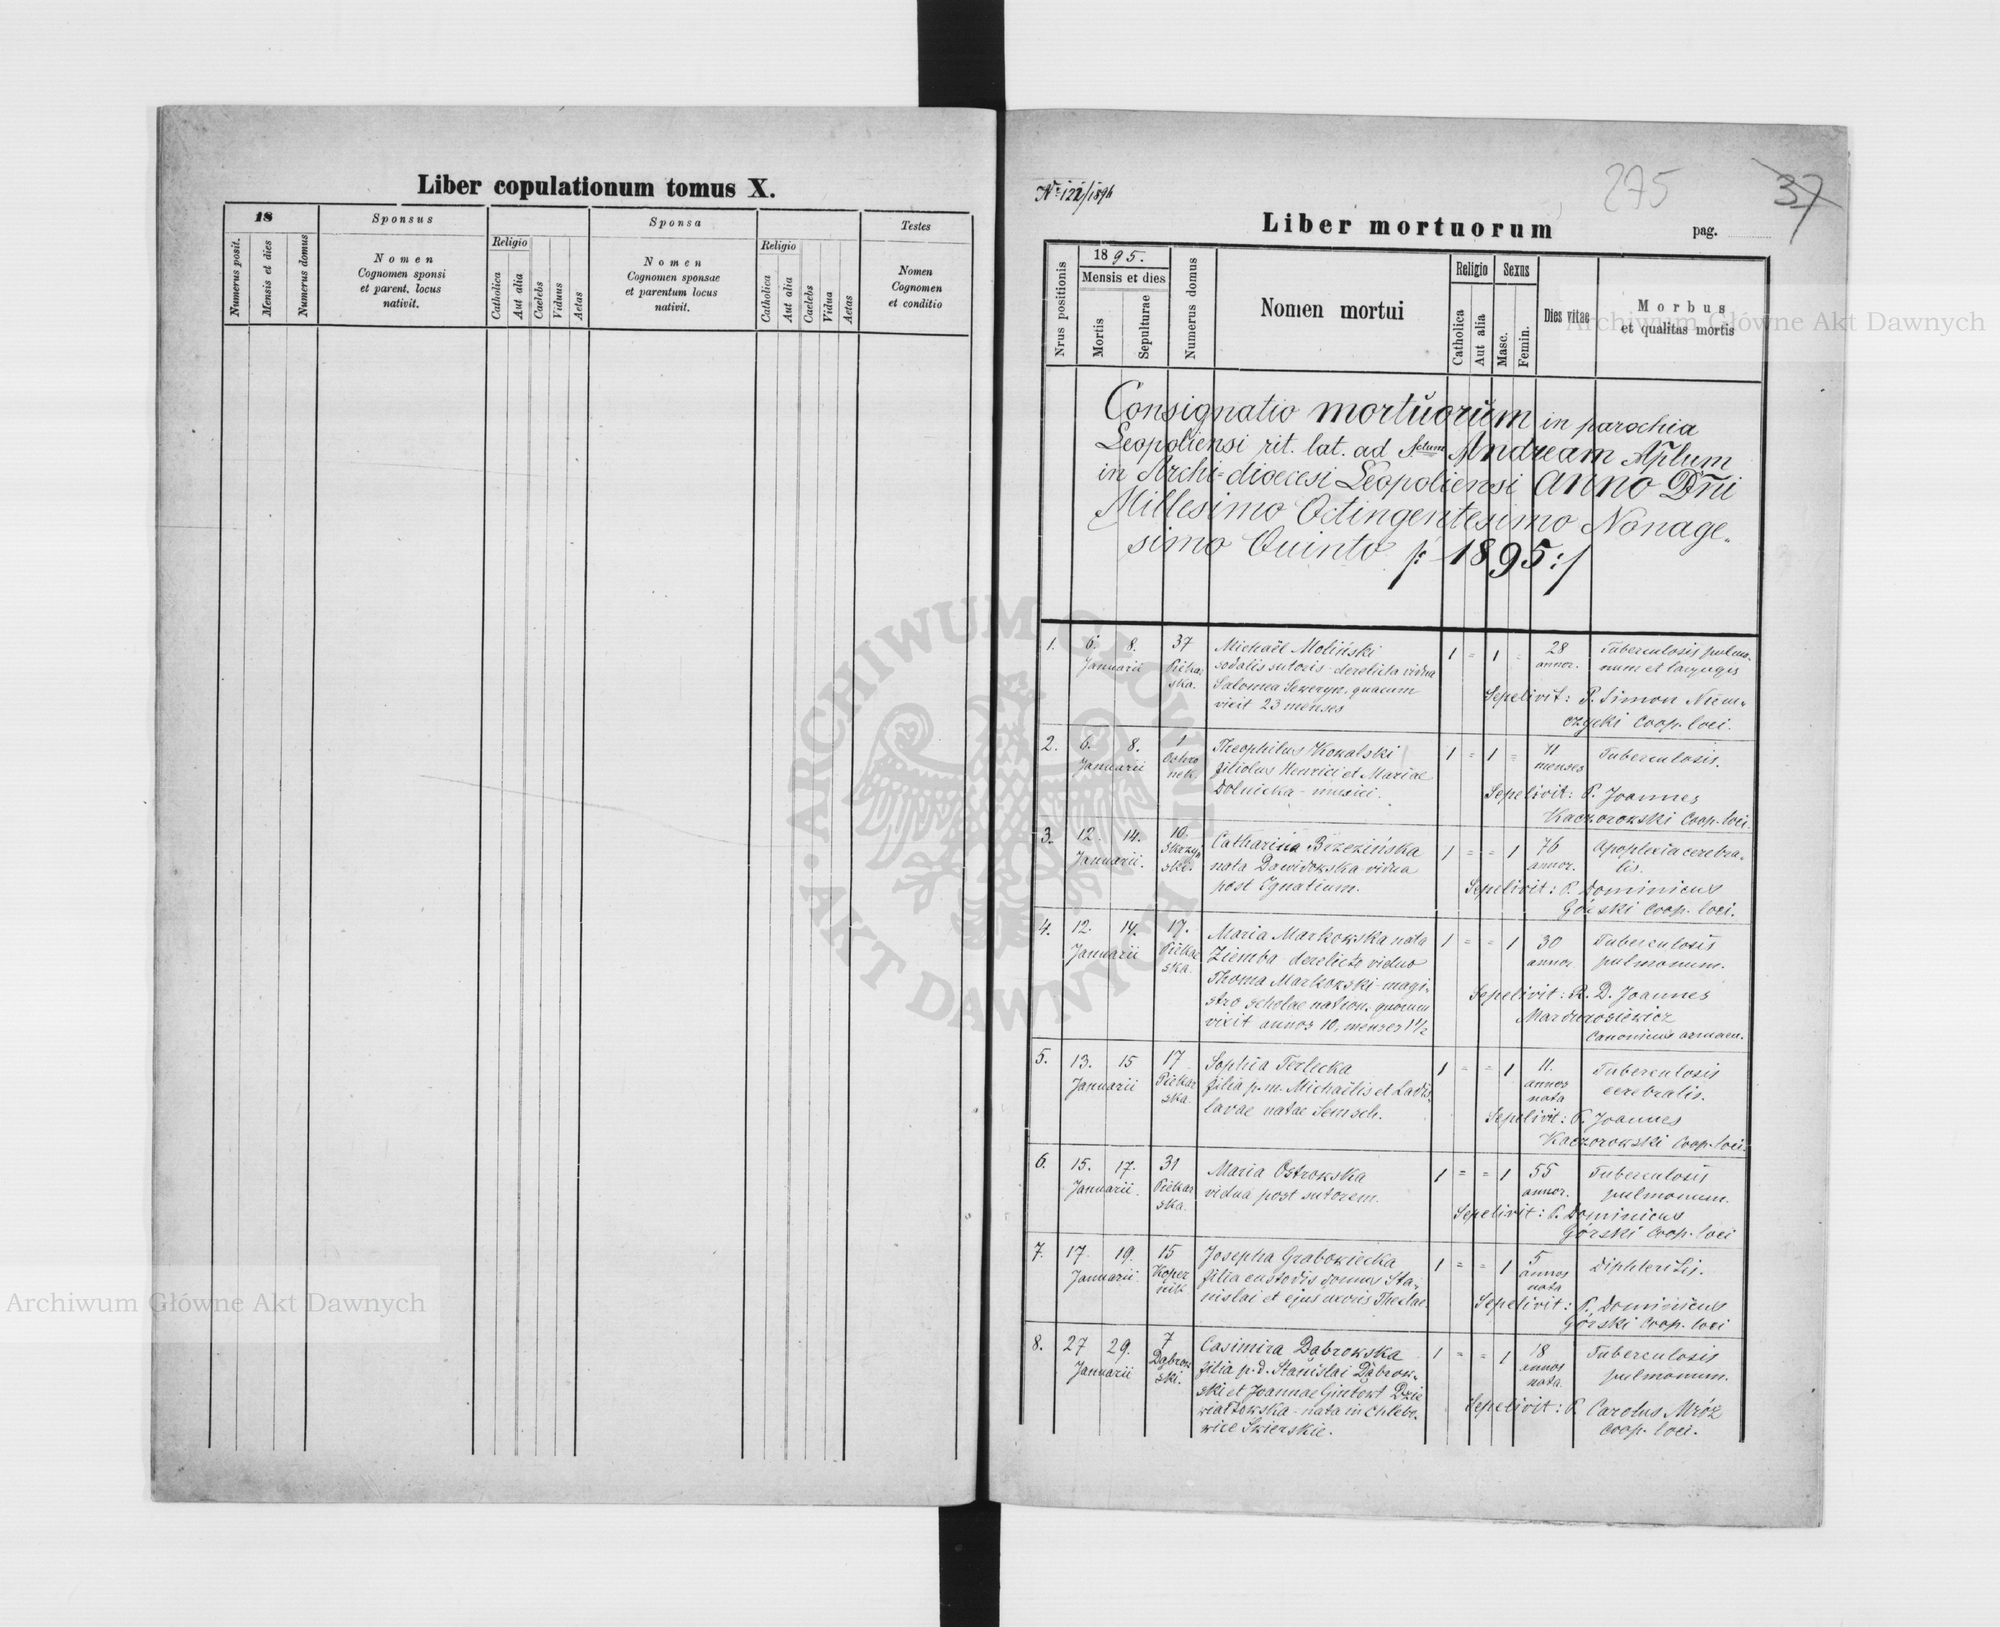 Liber copulationum tomus X.
18
Numerus posit.
Mensis et dies
Numerus domus
Sponsus
Nomen
Cognomen sponsi
et parent. locus
nativit.
Religio
Catholica
Aut alia
Caelebs
Viduus
Aetas
Sponsa
Nomen
Cognomen sponsae
et parentum locus
nativit.
Religio
Catholica
Aut alia
Caelebs
Vidua
Aetas
Testes
Nomen
Cognomen
et conditio
275
37
Liber mortuorum
pag.
Nrus positionis
1895.
Mensis et dies
Mortis
Sepulturae
Numerus domus
Nomen mortui
Religio
Catholica
Aut alia
Sexus
Masc.
Femin.
Dies vitae
Morbus
et qualitas mortis
Consignatio mortuorum in parochia
Leopoliensi rit. lat. ad Sctum Andream Aplum
in Archi-dioecesi Leopoliensi Anno Dñi
Millesimo Octingentesimo Nonage-
simo Quinto /: 1895 :/
1. 6. 8. 37 Michaël Moliński 1 = 1 = 28 Tuberculosis pulmo-
Januarii Piekar sodalis sutoris - derelicta vidua annor. num et laryngis
ska. Salomea Seweryn, quacum Sepelivit: P. Simon Niem-
vixit 23 menses czycki Coop. loci.
2. 6. 8. 1 Theophilus Kowalski 1 = 1 = 11 Tuberculosis.
Januarii filiolus Henrici et Mariae menses
Dolnicka - musici. Sepelivit: P. Joannes
Kaczorowski Coop. loci
3. 12. 14. 10. Catharina Brzezińska 1 = = 1 76 Apoplexia cerebra-
Januarii. nata Dawidowska vidua annor. lis.
post Ignatium. Sepelivit: P. Dominicus
Górski Coop. loci.
4. 12. 14. 17. Maria Markowska nata 1 = = 1 30 Tuberculosis
Januarii Piekar Ziemba - derelicto viduo annor. pulmonum.
ska. Thoma Markowski - magi- Sepelivit: R. D. Joannes
stro scholae nation. quocum Mardurosiewicz
vixit annos 10, menses 1½ Canonicus armen.
5. 13. 15 17 Sophia Terlecka 1 = = 1 11. Tuberculosis
Januarii Piekar filia p. m. Michaëlis et Ladis annos cerebralis.
ska. lavae natae Semsch. nata
Sepelivit: P. Joannes
Kaczorowski Coop. loci.
6. 15. 17. 31 Maria Ostrowska 1 = = 1 55 Tuberculosis
Januarii. Piekar vidua post sutorem. annor. pulmonum.
ska. Sepelivit: P. Dominicus
Górski Coop. loci
7. 17. 19. 15 Josepha Grabowiecka 1 = = 1 5 Diphteritis.
Januarii Koper filia custodis domus Sta- annos
nik nislai et ejus uxoris Theclae. nata
Sepelivit: P. Dominicus
Górski Coop. loci
8. 27 29. 7 Casimira Dąbrowska 1 = = 1 18 Tuberculosis
Januarii Dąbrow filia p. d. Stanislai Dąbrow- annos pulmonum.
ski. ski et Joannae Gintowt Dzie nata.
wiałtowska - nata in Chlebo- Sepelivit: P. Carolus Mróz
wice Swierskie. Coop. loci.
Archiwum Główne Akt Dawnych
Archiwum Główne Akt Dawnych
ARCHIWUM GŁÓWNE AKT DAWNYCH